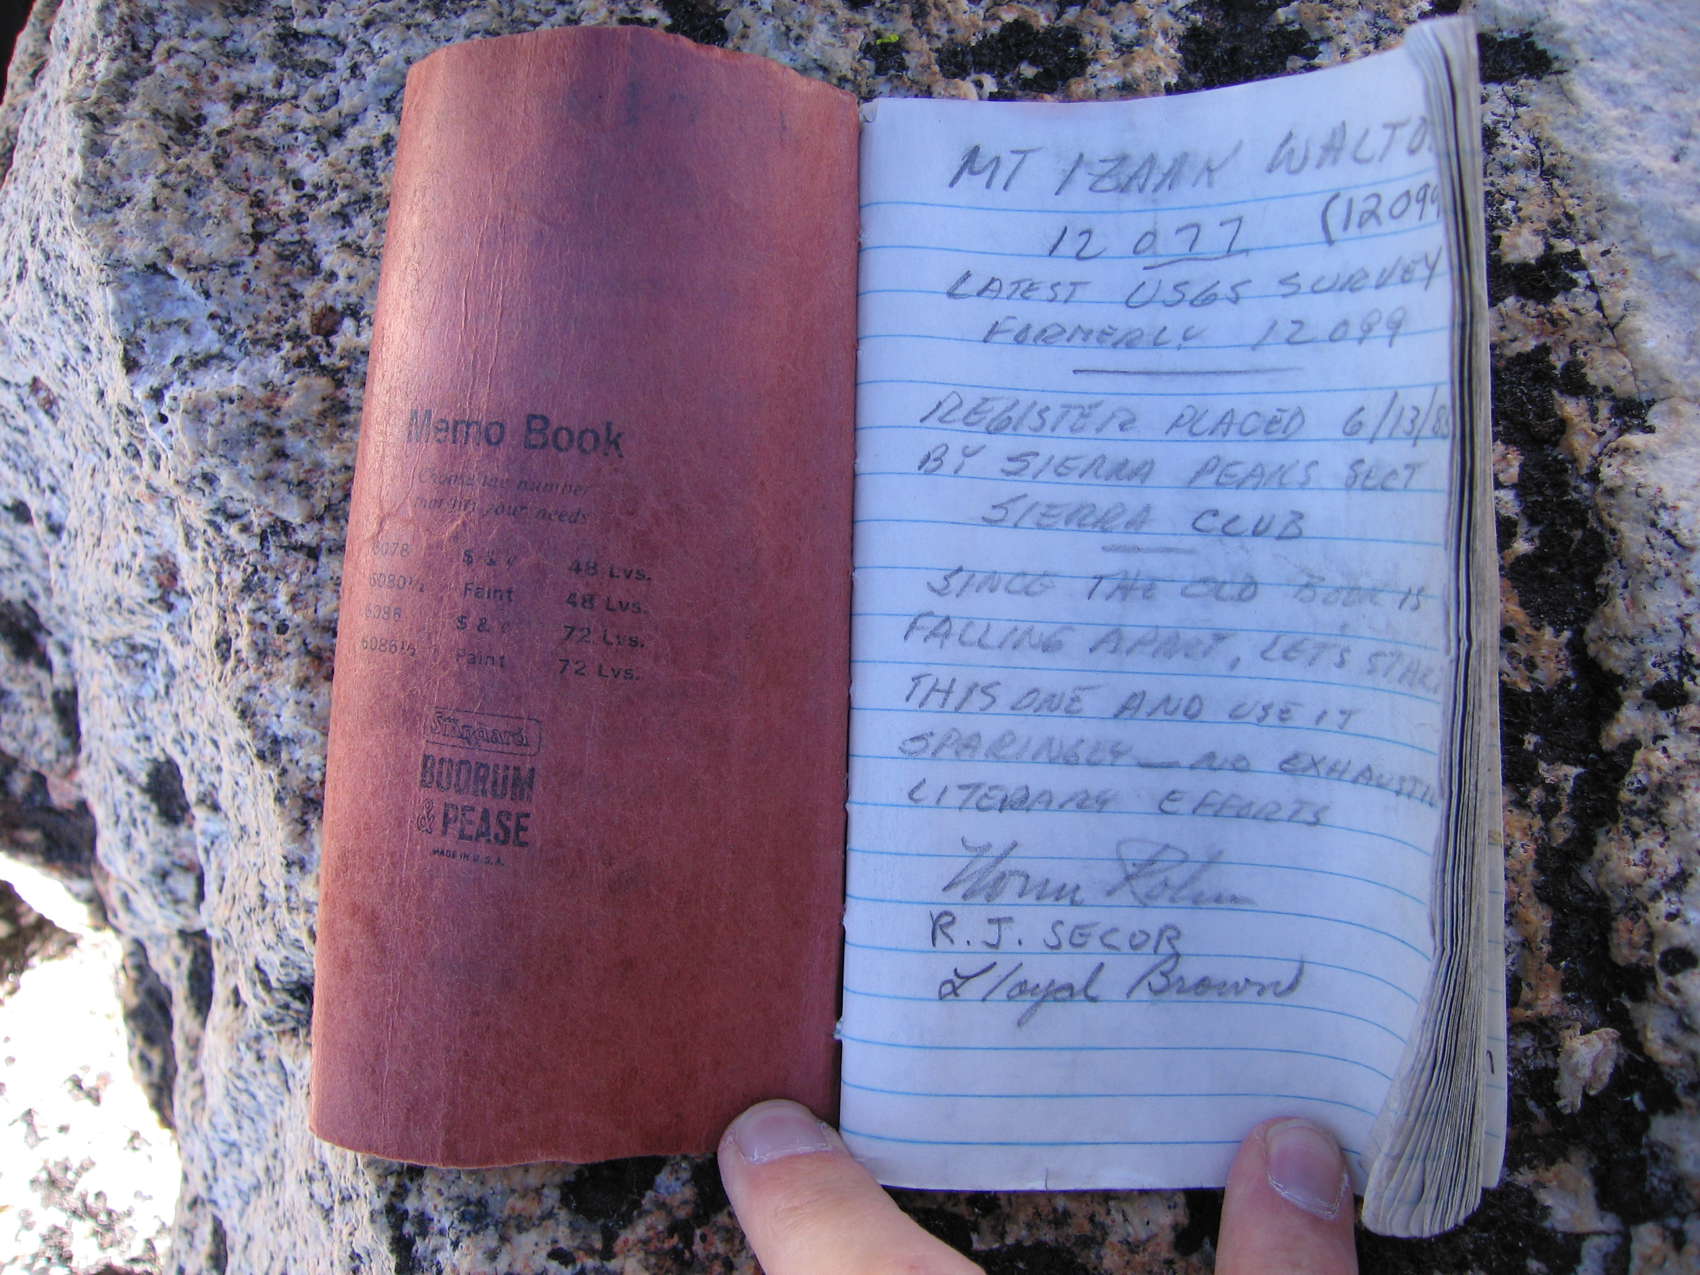 Memo Book
Choose the number
matching your needs
6078 $ & ¢ 48 Lvs.
6080½ Faint 48 Lvs.
6086 $ & ¢ 72 Lvs.
6086½ Faint 72 Lvs.
Standard
BOORUM
& PEASE
MADE IN U.S.A.
MT IZAAK WALTO
12 077 (12099
LATEST USGS SURVEY
FORMERLY 12099
REGISTER PLACED 6/13/8
BY SIERRA PEAKS SECT
SIERRA CLUB
SINCE THE OLD BOOK IS
FALLING APART, LET'S START
THIS ONE AND USE IT
SPARINGLY — NO EXHAUSTIV
LITERARY EFFORTS
Norm Rohn
R. J. SECOR
Lloyd Brown